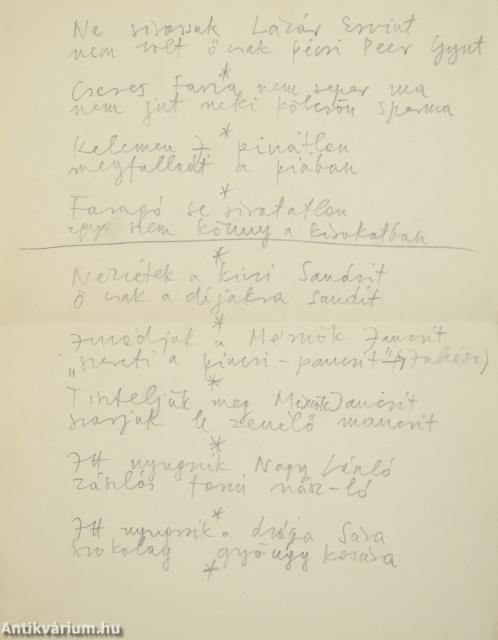 Ne sirassuk Lázár Ervint
nem volt ő csak pécsi Peer Gynt
*
Cseres Tasra nem seper ma
nem jut neki kölcsön sperma
*
Kelemen J. pinátlan
megfulladt a piában
*
Faragó se siratatlan
egy szem könny a kisokatban
*
Nézzétek a kicsi Sandrit
ő csak a díjakra sandít
*
Imádjuk a Mészöly Jancsit
"szereti a pincsi-pancsit"
*
Tiszteljük meg Jancsit
szarjuk le zenélő mancsit
*
Itt nyugszik Nagy László
zászlós farú nász-ló
*
Itt nyugszik a drága Sára
Szokolay gyöngy kosára
*
Antikvárium.hu